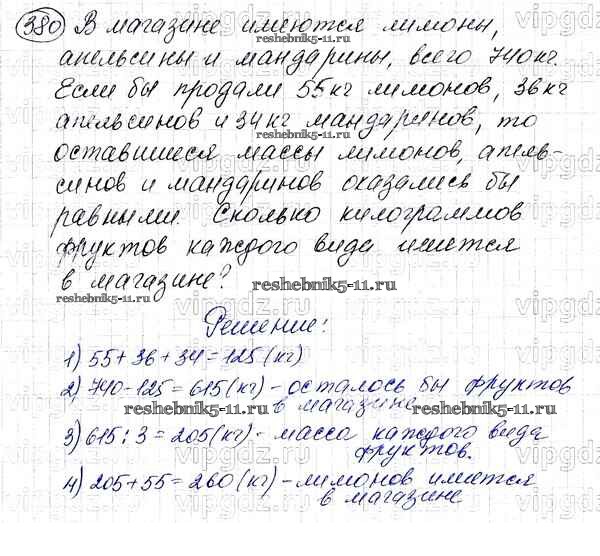 380 В магазине имеются лимоны,
апельсины и мандарины, всего 740 кг.
Если бы продали 55 кг лимонов, 36 кг
апельсинов и 34 кг мандаринов, то
оставшиеся массы лимонов, апель-
синов и мандаринов оказались бы
равными. Сколько килограммов
фруктов каждого вида имеется
в магазине?
Решение:
1) 55 + 36 + 34 = 125 (кг)
2) 740 - 125 = 615 (кг) - осталось бы фруктов
в магазине
3) 615 : 3 = 205 (кг) - масса каждого вида
фруктов.
4) 205 + 55 = 260 (кг) - лимонов имеется
в магазине
reshebnik5-11.ru
reshebnik5-11.ru
reshebnik5-11.ru
reshebnik5-11.ru
reshebnik5-11.ru
reshebnik5-11.ru
vipgdz.ru